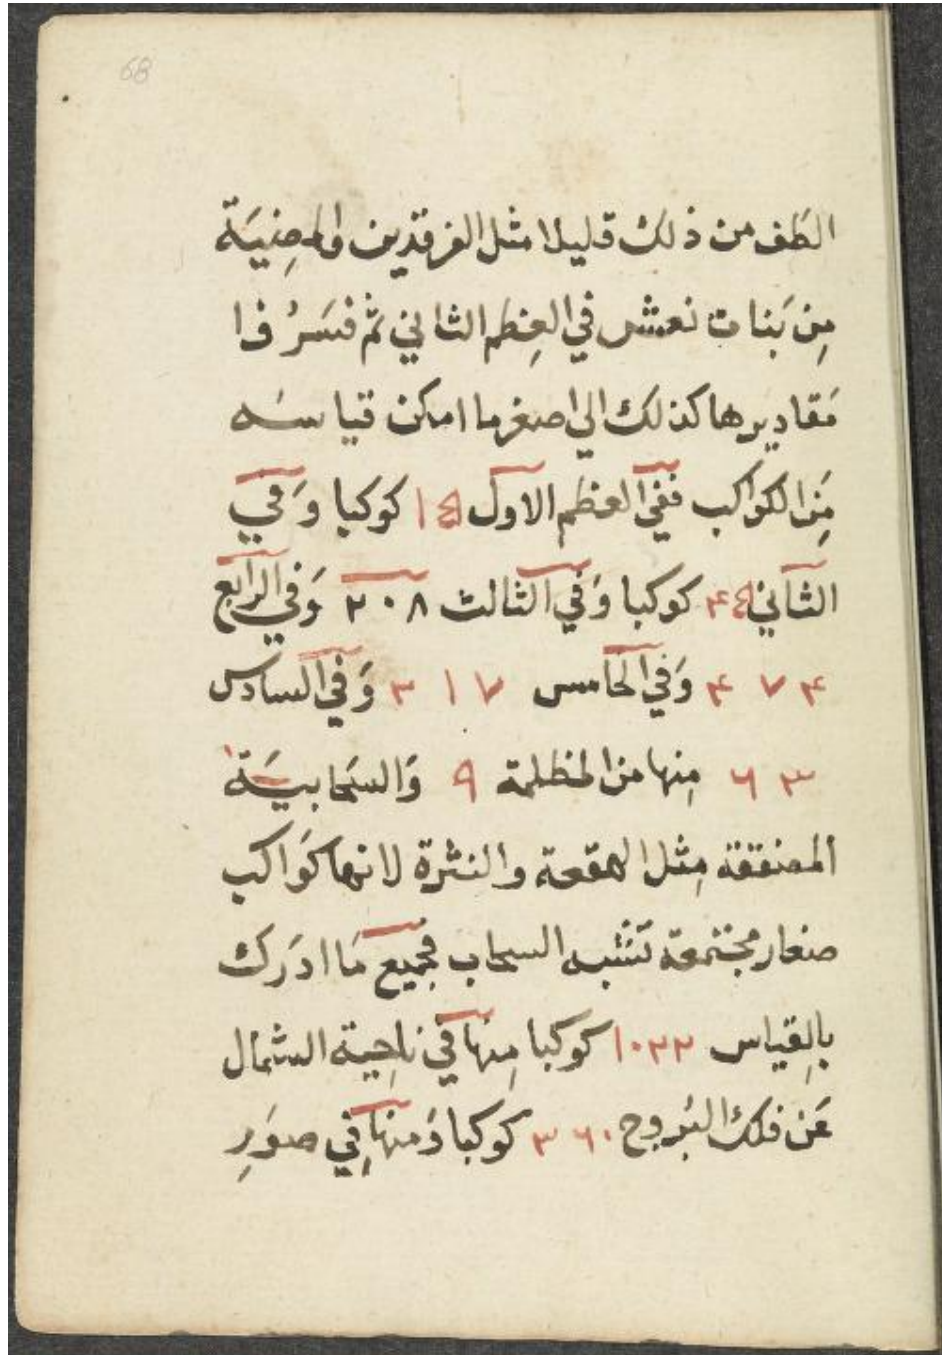 68
الطف من ذلك قليلا مثل الفرقدين والمضيئة
مِن بَنات نعش في العِظم الثاني ثم فسَرُ فوا
مَقاديرها كذلك الي اصغر ما امكن قياسَه
مِنَ الكواكب ففي العظم الاول ١٤ كوكبا وَفي
الثاني ٤٤ كوكبا وَفي الثالث ٢٠٨ وَفي الرابع
٤٧٤ وَفي الخامس ٢١٧ وَفي السادس
٦٣ مِنها من المظلمة ٩ وَالسَحابيَة
المصنفقة مِثل الهقعة والنثرة لانها كوَاكب
صغار مجتمعة تشبه السحاب فجميع مَا ادرَك
بالِقياس ١٠٢٢ كوكبا مِنها في ناحِية الشمال
عَن فلك البُروج ٣٦٠ كوكبا وَمنها في صوَرِ